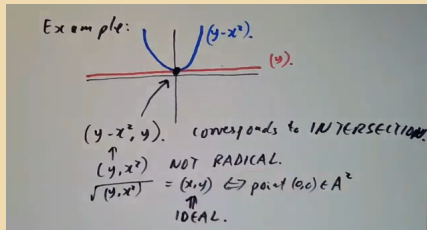 Example:
(y-x²).
(y).
(y-x², y). corresponds to INTERSECTION.
↑
(y, x²) NOT RADICAL.
√(y,x²) = (x,y) ⇔ point (0,0) ∈ A²
⇑
IDEAL.